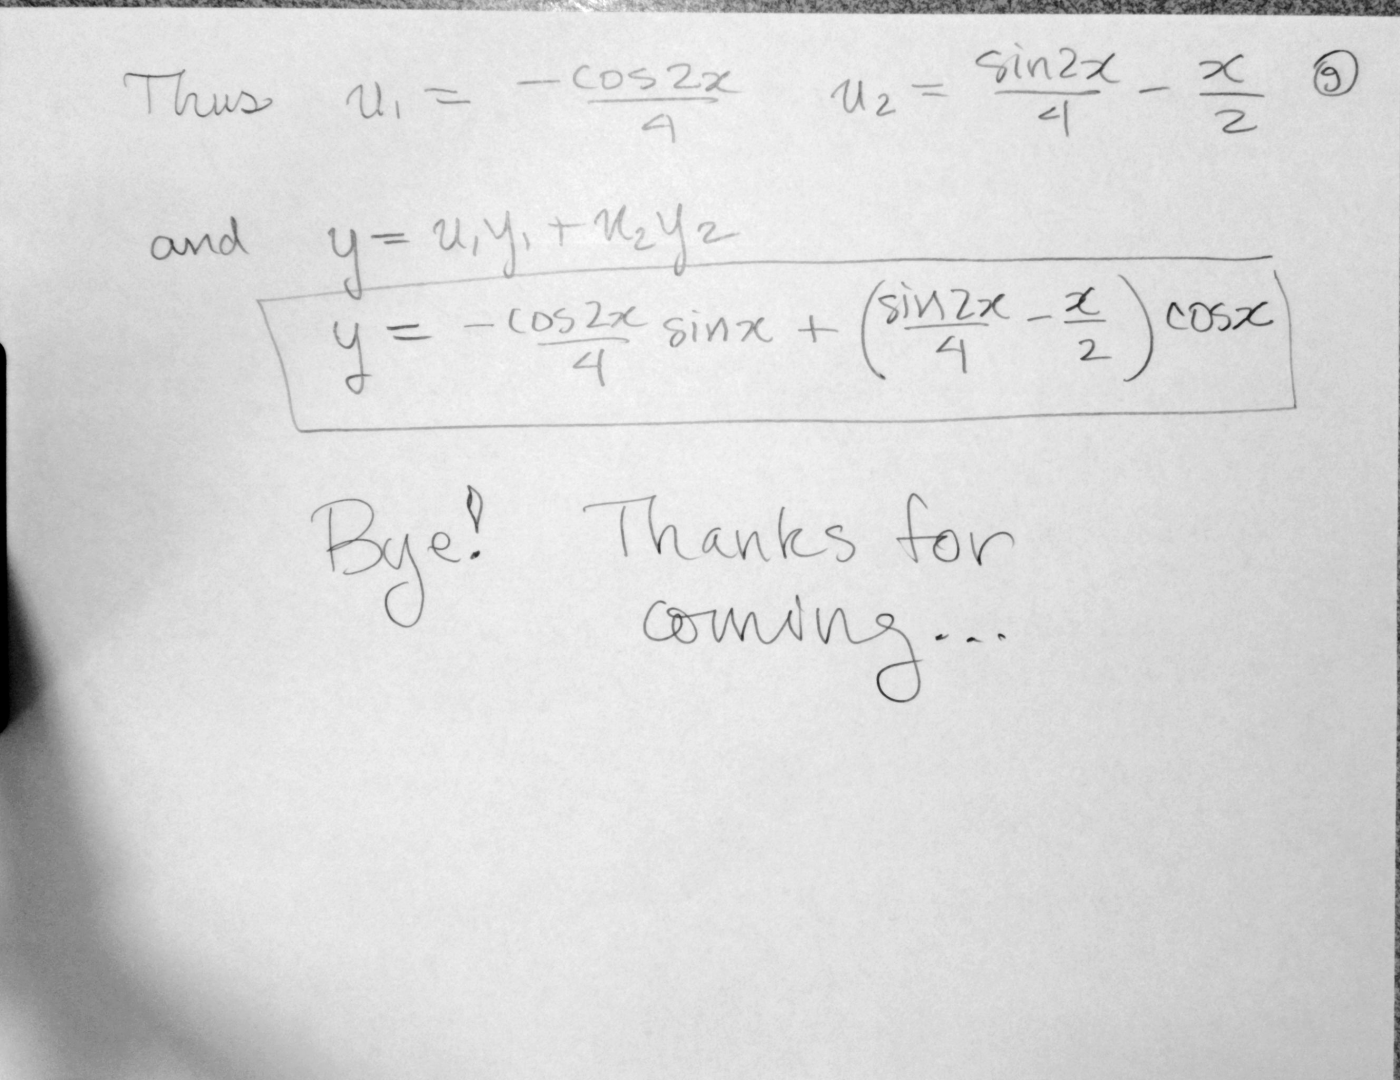 Thus u₁ = -cos2x/4 u₂ = sin2x/4 - x/2 ⑨
and y = u₁y₁ + u₂y₂
y = -cos2x/4 sinx + (sin2x/4 - x/2) cosx
Bye! Thanks for
coming...